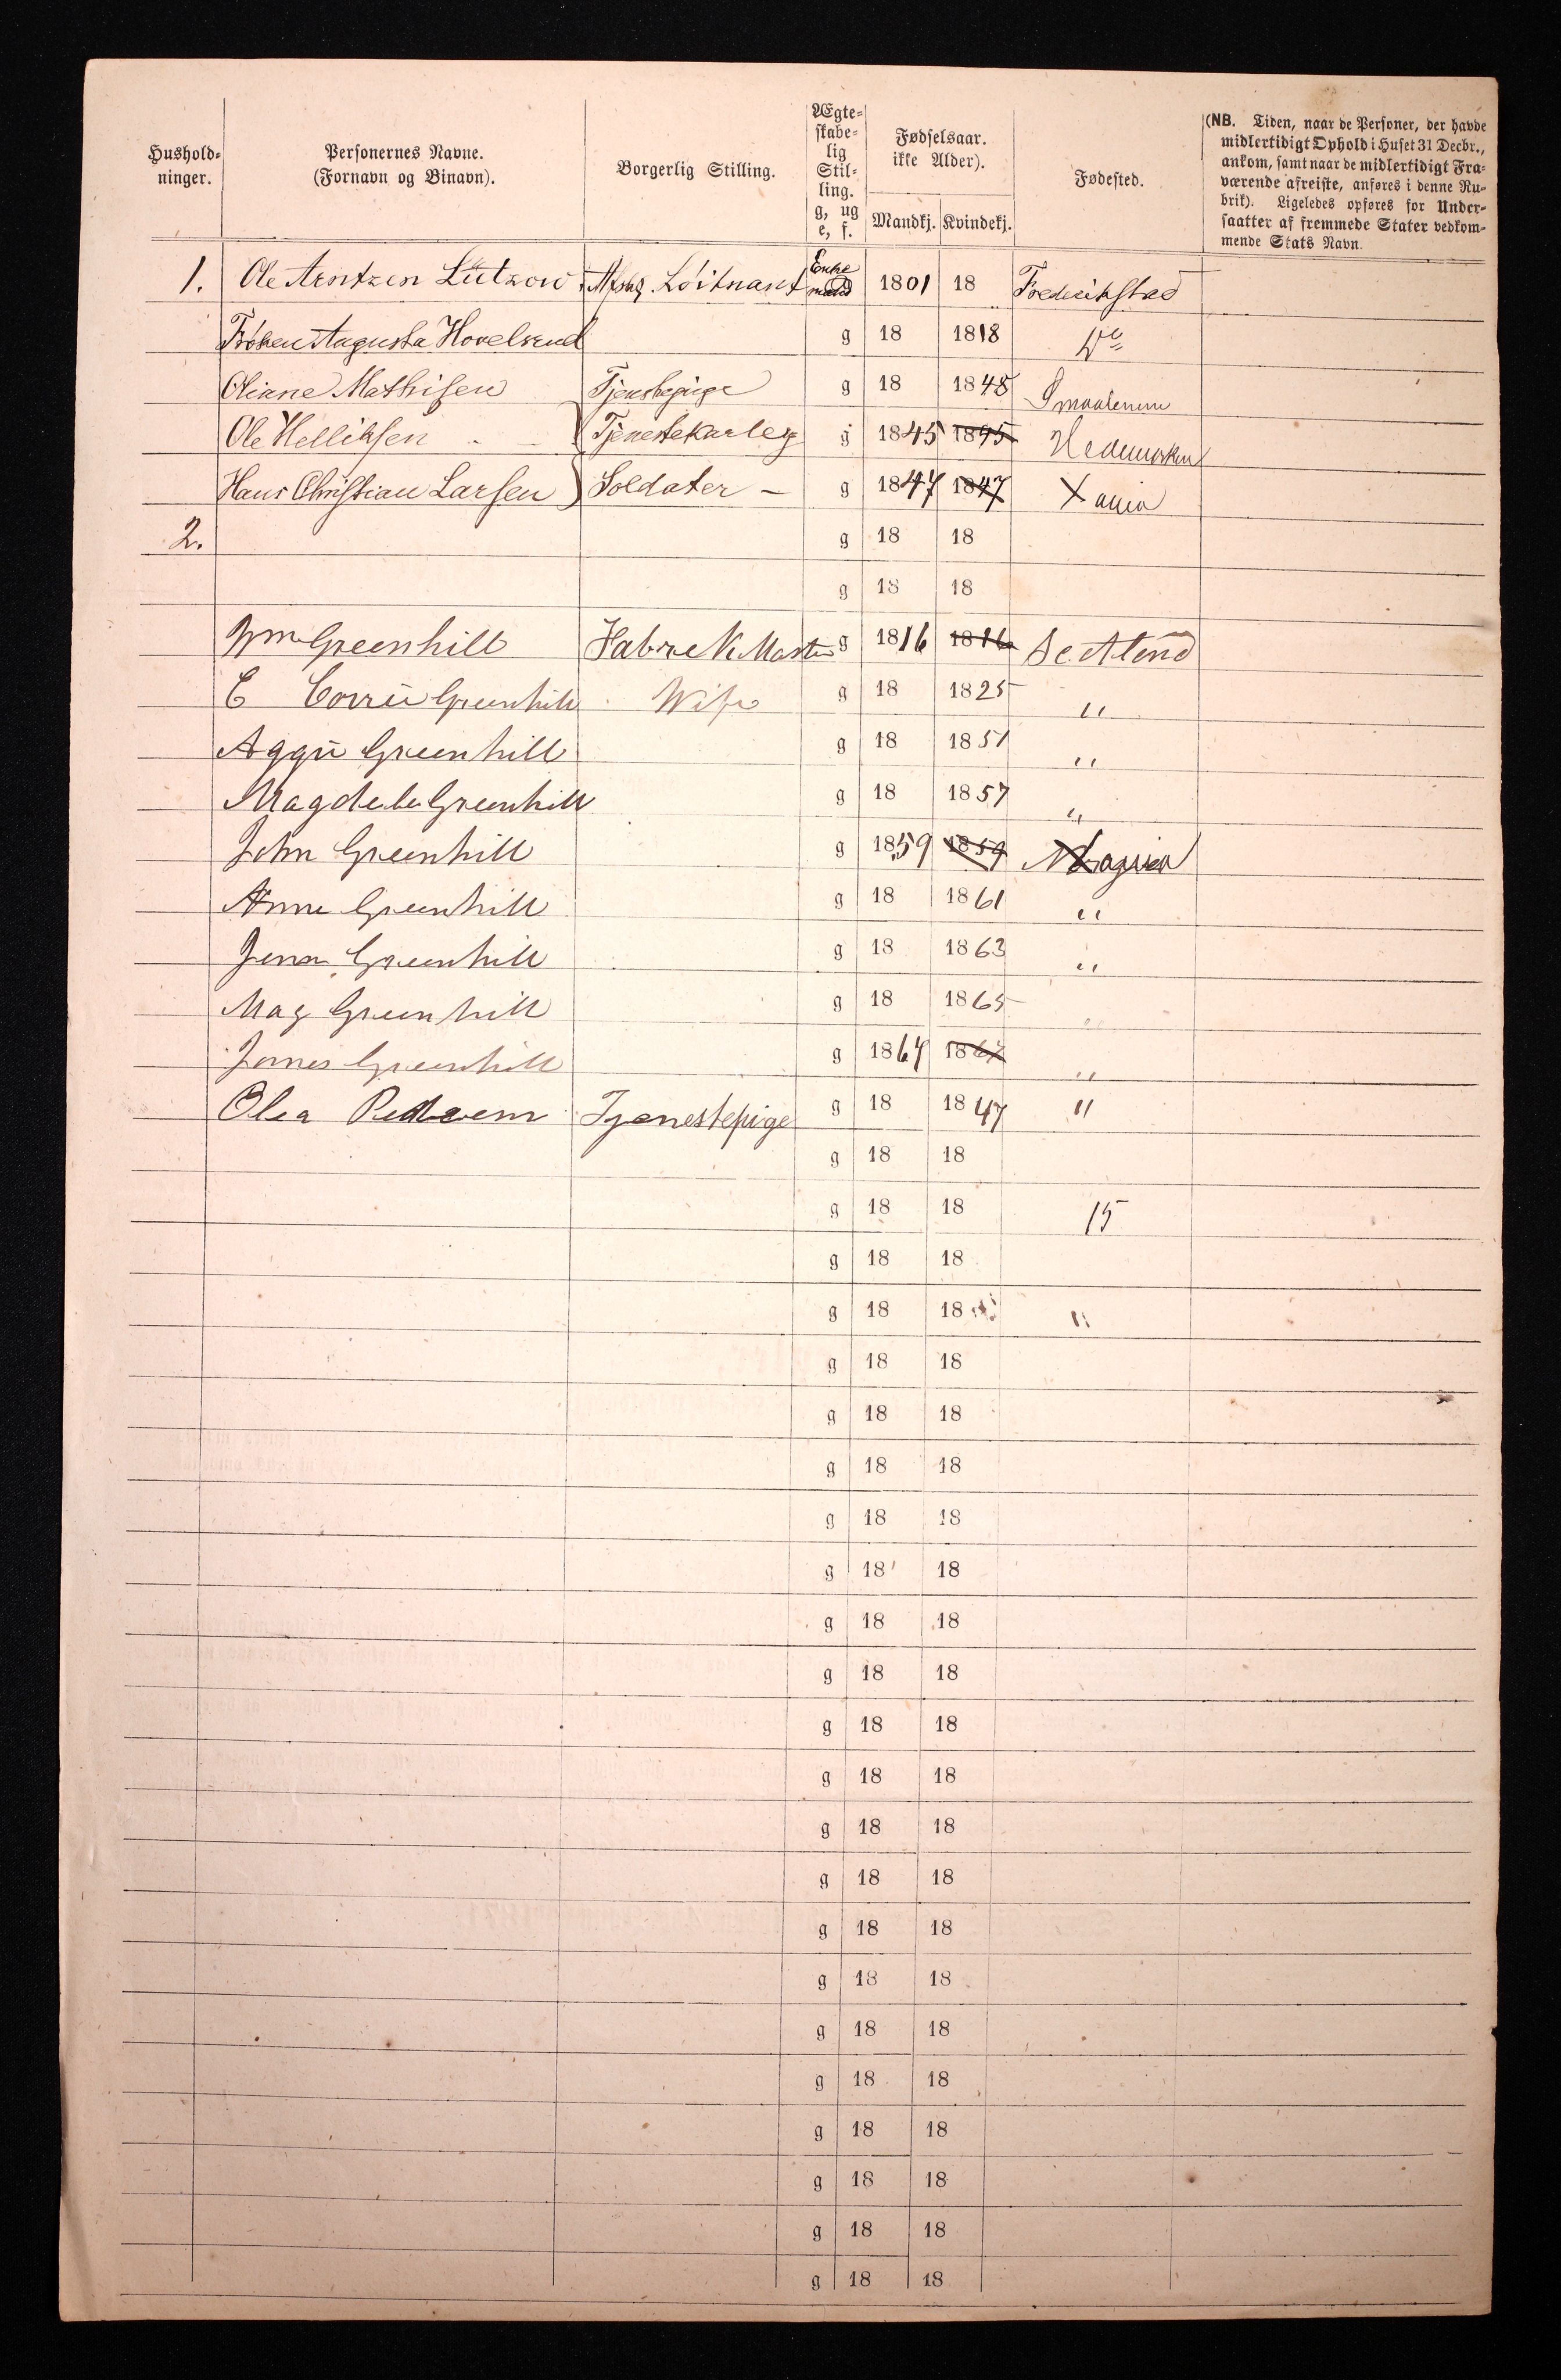 Hushold-
ninger.
Personernes Navne.
(Fornavn og Binavn).
Borgerlig Stilling.
Ægte-
skabe-
lig
Stil-
ling.
g, ug
e, f.
Fødselsaar.
ikke Alder).
Mandkj. Kvindekj.
Fødested.
(NB. Tiden, naar de Personer, der havde
midlertidigt Ophold i Huset 31 Decbr.,
ankom, samt naar de midlertidigt Fra-
værende afreiste, anføres i denne Ru-
brik). Ligeledes opføres for Under-
saatter af fremmede Stater vedkom-
mende Stats Navn.
1. Ole Arntzen Lützow Afsky. Löitnant Enke mand 1801 18 Frederikstad
Frøken Augusta Hovelsrud g 18 1818 Do
Oliane Mathisen Tjenstepige g 18 1848 Smaalenene
Ole Helliksen Tjenestekarle g 1845 1845 Hedemarken
Hans Christian Larsen Soldater g 1847 1847 Xania
2. g 18 18
g 18 18
Wm Greenhill g 1816 1816 Scotland
E Corrie Greenhill Wife g 18 1825 "
Aggie Greenhill g 18 1851 "
Greenhill g 18 1857 "
John Greenhill g 1859 1859
Anne Greenhill g 18 1861 "
Greenhill g 18 1863 "
Mag Greenhill g 18 1865 "
James Greenhill g 1867 1867 "
Olea Tjenestepige g 18 1847 "
g 18 18
g 18 18 15
g 18 18
g 18 18 "
g 18 18
g 18 18
g 18 18
g 18 18
g 18 18
g 18 18
g 18 18
g 18 18
g 18 18
g 18 18
g 18 18
g 18 18
g 18 18
g 18 18
g 18 18
g 18 18
g 18 18
g 18 18
g 18 18